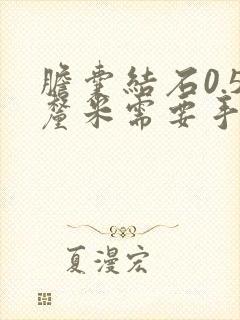 膽囊結石0.5
釐米需要手
夏漫宏